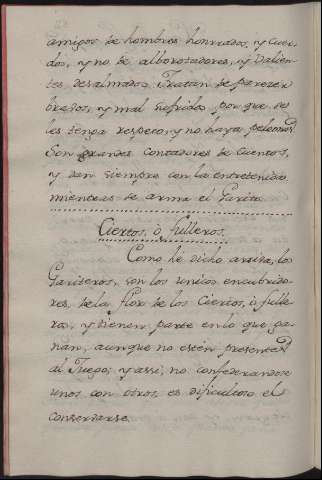 amigos de hombres honrrados, y Cuer-
dos, y no de alborotadores, y Valien-
tes desalmados. Tratan de parezer
bravos, y mal sufridos, por que se
les tenga respeto, y no haya pelonias
Son grandes Contadores de Cuentos,
y dan siempre con la entretenida
mientras se arma el Garito.
Ciertos, ô fulleros.
Como he dicho arriva, los
Gariteros, son los unicos encubrido-
res de la flor de los Ciertos, ò fulle-
ros, y tienen parte en lo que ga-
nan, aunque no esten presentes
al Juego; y assi, no confederandose
unos con otros, es dificultoso el
Conservarse.